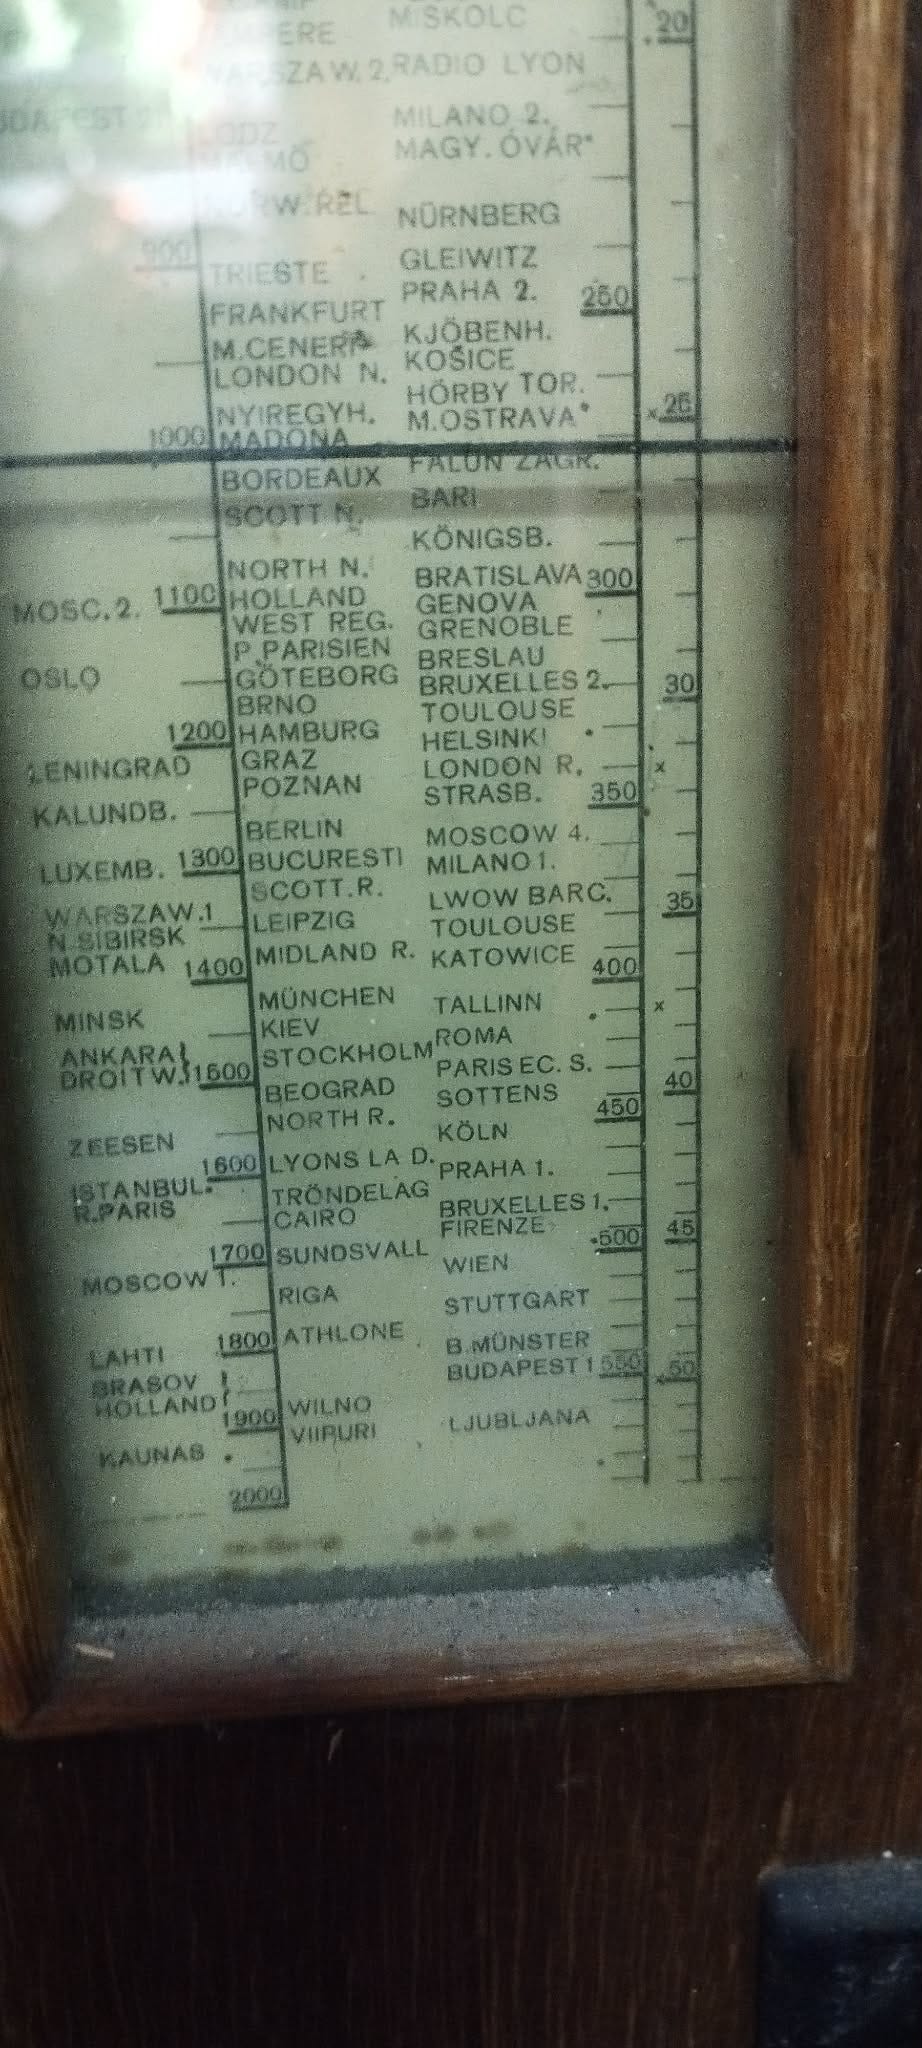 MISKOLC
20
WARSZAW. 2. RADIO LYON
MILANO 2.
LODZ
MAGY. ÓVÁR
MALMÖ
NORW. REL
NÜRNBERG
900
GLEIWITZ
TRIESTE
PRAHA 2. 250
FRANKFURT
KJÖBENH.
M. CENERI
KOŠICE
LONDON N.
HÖRBY TOR.
NYIREGYH. M. OSTRAVA × 25
1000 MADONA
FALUN ZAGR.
BORDEAUX
BARI
SCOTT N.
KÖNIGSB.
NORTH N. BRATISLAVA 300
MOSC. 2. 1100 HOLLAND GENOVA
WEST REG. GRENOBLE
P. PARISIEN BRESLAU
OSLO GÖTEBORG BRUXELLES 2. 30
BRNO TOULOUSE
1200 HAMBURG HELSINKI
LENINGRAD GRAZ LONDON R. ×
POZNAN STRASB. 350
KALUNDB.
BERLIN MOSCOW 4.
LUXEMB. 1300 BUCURESTI MILANO 1.
SCOTT. R. LWOW BARC. 35
WARSZAW. 1 LEIPZIG TOULOUSE
N. SIBIRSK
MOTALA 1400 MIDLAND R. KATOWICE 400
MÜNCHEN TALLINN ×
MINSK KIEV ROMA
ANKARA } STOCKHOLM PARIS EC. S.
DROITW. } 1500 BEOGRAD SOTTENS 40
NORTH R. 450
ZEESEN KÖLN
1600 LYONS LA D. PRAHA 1.
ISTANBUL. TRÖNDELAG BRUXELLES 1.
R. PARIS CAIRO FIRENZE 500 45
1700 SUNDSVALL WIEN
MOSCOW 1.
RIGA STUTTGART
LAHTI 1800 ATHLONE B. MÜNSTER
BUDAPEST 1 550 50
BRASOV }
HOLLAND } 1900 WILNO LJUBLJANA
VIIPURI
KAUNAS
2000